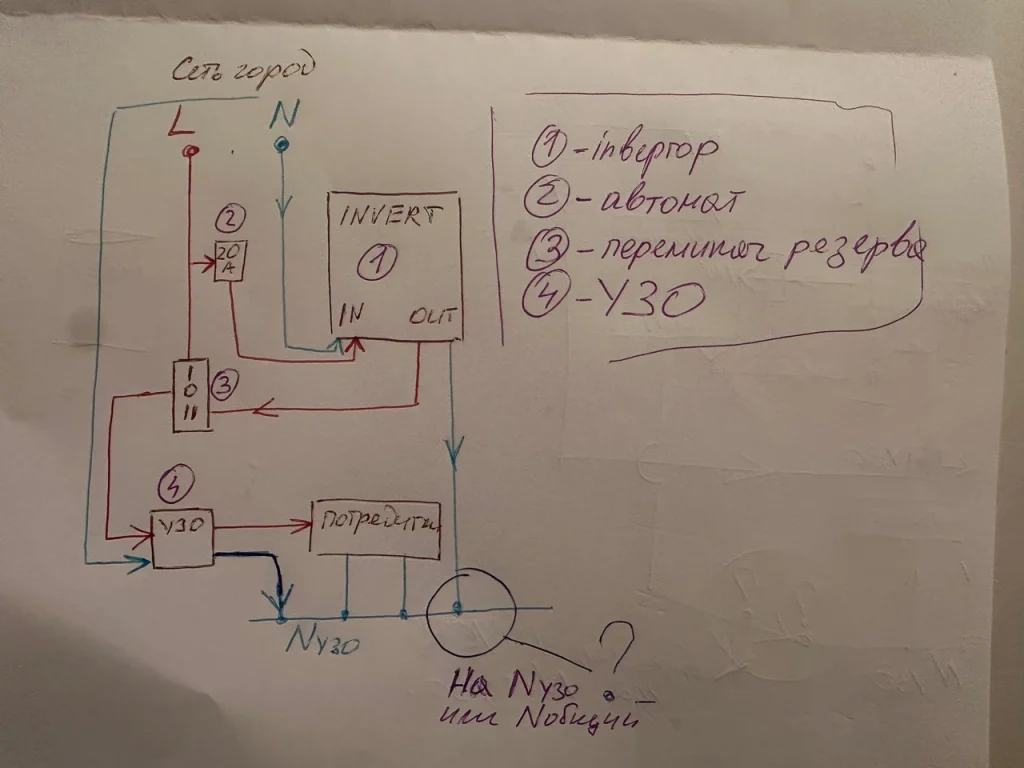 Сеть город
L
N
2
20
A
INVERT
1
IN
OUT
I
0
II
3
4
УЗО
ПОТРЕБИТЕЛИ
NУЗО
?
На NУЗО
или Nобщий
1 - iнвертор
2 - автомат
3 - перемикач резерва
4 - УЗО